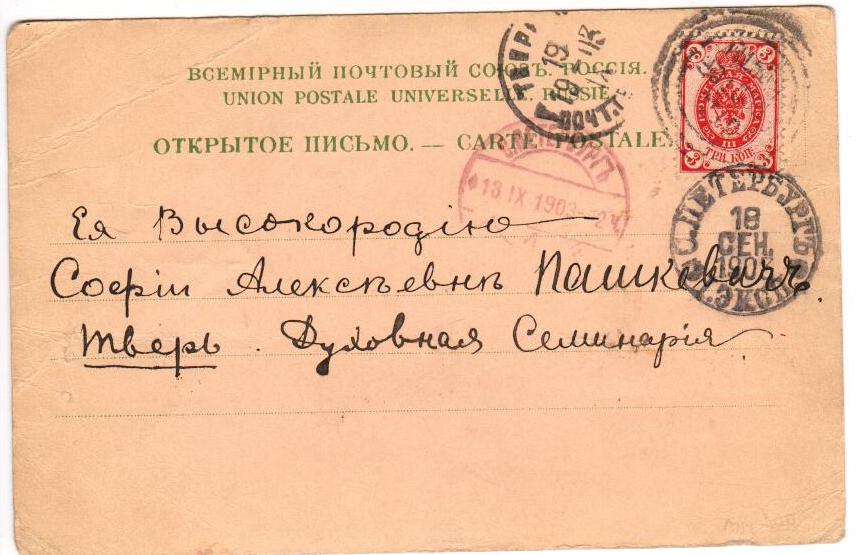 ВСЕМІРНЫЙ ПОЧТОВЫЙ СОЮЗЪ. РОССІЯ.
UNION POSTALE UNIVERSELLE. RUSSIE
ОТКРЫТОЕ ПИСЬМО. — CARTE POSTALE.
3 3
ТРИ КОП.
3 3
С.ПЕТЕРБУРГЪ
18 IX 1903
С.ПЕТЕРБУРГЪ
18
СЕН.
1903
ЭКСП
19
ПОЧТ.
Ея Высокородію
Софіи Алексѣевнѣ Пашкевичъ.
Тверь. Духовная Семинарія